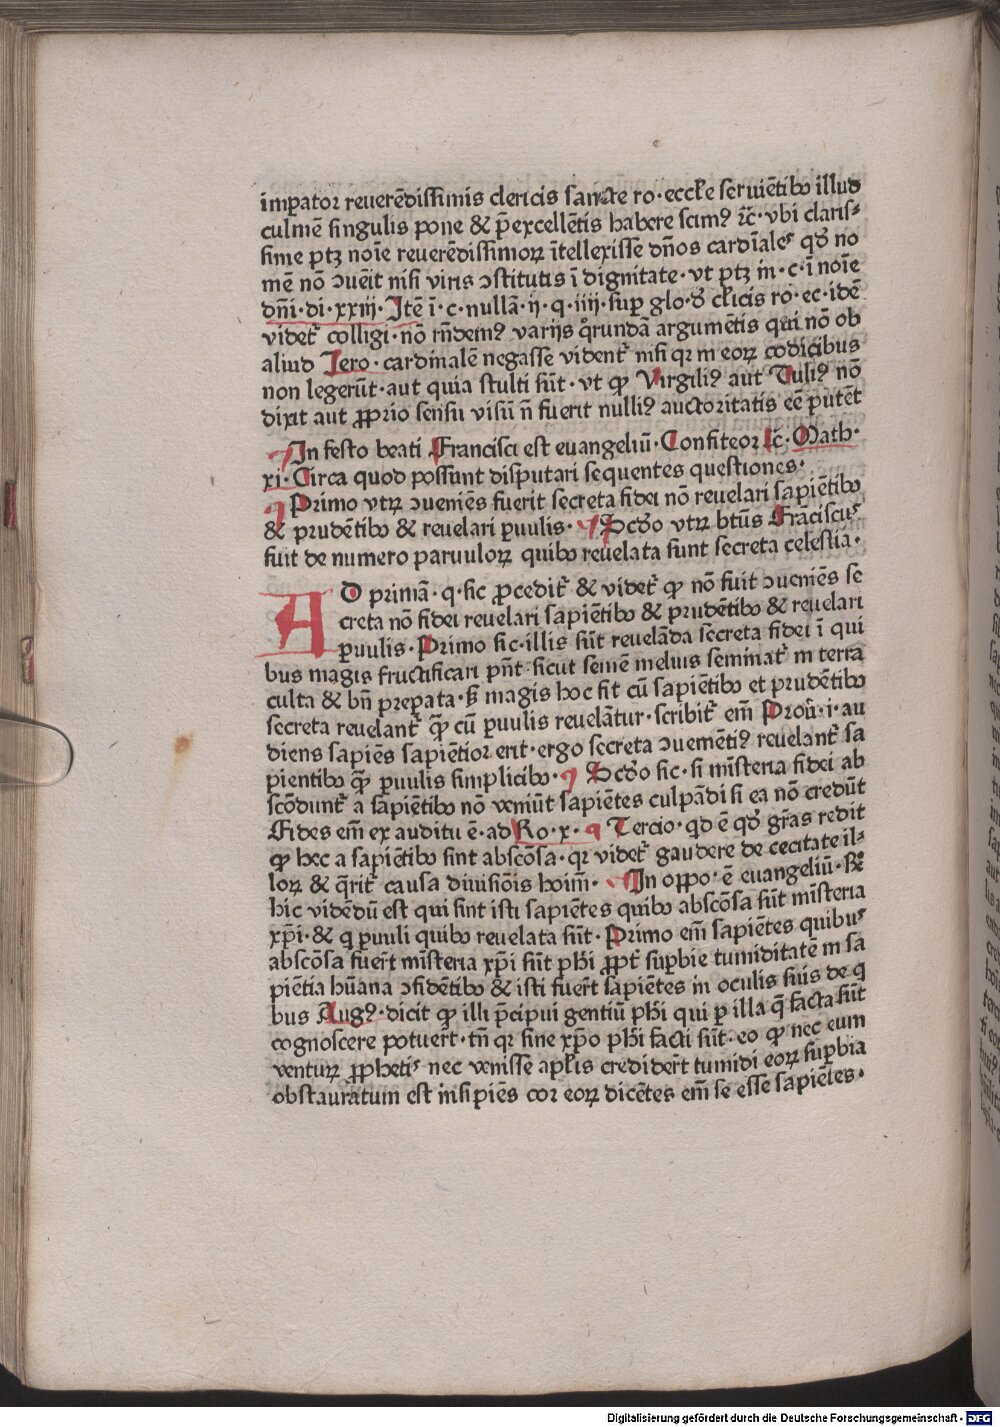 imperator reuerēdissimis clericis sancte ro·eccl'e seruiētibꝰ illud
culmē singulis pone & p̄excellētis habere scimꝰ ꝛc̄·vbi claris⸗
sime ptꝫ noīe reuerēdissimoꝝ ītellexisse dn̄os cardīales qd' no
mē nō ↄuēit nisi viris ↄstitutis ī dignitate·vt ptꝫ in·c·ī noīe
dn̄i·di·xxiij·Itē ī·c·nullā·ij·q·iiij·sup glo·d' cl'icis ro·ec·idē
videt᷑ colligi·nō rn̄demꝰ varijs q̊rundā argumētis qui nō ob
aliud Iero·cardinalē negasse vident᷑ nisi qꝛ in eoꝝ codicibus
non legerūt·aut quia stulti sūt·vt ꝙ Virgiliꝰ aut Tuliꝰ nō
dixit aut ꝓprio sensu visū n̄ fuerit nulliꝰ auctoritatis eē putēt
¶In festo beati Francisci est euangeliū·Confiteor ꝛc̄·Math·
xi·Circa quod possunt disputari sequentes questiones·
¶Primo vtꝝ ↄueniēs fuerit secreta fidei nō reuelari sapiētibꝰ
& prudētibꝰ & reuelari ꝑuulis·¶Scd'o vtꝝ btūs Frāciscus
fuit de numero paruuloꝝ quibꝰ reuelata sunt secreta celestia·
AD primā·q·sic ꝓcedit᷑ & videt᷑ ꝙ nō fuit ↄueniēs se
creta nō fidei reuelari sapiētibꝰ & prudētibꝰ & reuelari
ꝑuulis·Primo sic·illis sūt reuelāda secreta fidei ī qui
bus magis fructificari pn̄t·sicut semē melius seminat᷑ in terra
culta & bn̄ prepata·sꝫ magis hoc fit cū sapiētibꝰ et prudētibꝰ
secreta reuelant᷑ ꝙ̄ cū ꝑuulis reuelātur·scribit᷑ em̄ Prou̅·i·au
diens sapiēs sapiētior erit·ergo secreta ↄueniētiꝰ reuelant᷑ sa
pientibꝰ ꝙ̄ ꝑuulis simplicibꝰ·¶Scd'o sic·si misteria fidei ab
scōdunt᷑ a sapiētibꝰ nō veniūt sapiētes culpādi si ea nō credūt
Fides em̄ ex auditu ē·ad Ro·x·¶Tercio·qd ē qd' gr̄as redit
ꝙ hec a sapiētibꝰ sint abscōsa·qꝛ videt᷑ gaudere de cecitate il⸗
loꝝ & q̄rit᷑ causa diuisiōis hoīm̄·¶In oppo·ē euangeliū·Rn̄
hic vidēdū est qui sint isti sapiētes quibꝰ abscōsa sūt misteria
xp̄i·& q ꝑuuli quibꝰ reuelata sūt·Primo em̄ sapiētes quibus
abscōsa fuer̄t misteria xp̄i sūt ph'i ꝓpt᷑ supbie tumiditatē in sa
piētia hūana ↄfidētibꝰ & isti fuer̄t sapiētes in oculis suis de q
bus Augꝰ·dicit ꝙ illi p̄cipui gentiū ph'i qui ꝑ illa q̄ facta sūt
cognoscere potuer̄t·tn̄ qꝛ sine xp̄o ph'i facti sūt·eo ꝙ nec eum
venturꝝ ꝓphetis nec venisse apl'is crediderīt tumidi eoꝝ supbia
obstauratum est insipiēs cor eoꝝ dicētes em̄ se esse sapiētes·
Digitalisierung gefördert durch die Deutsche Forschungsgemeinschaft - DFG